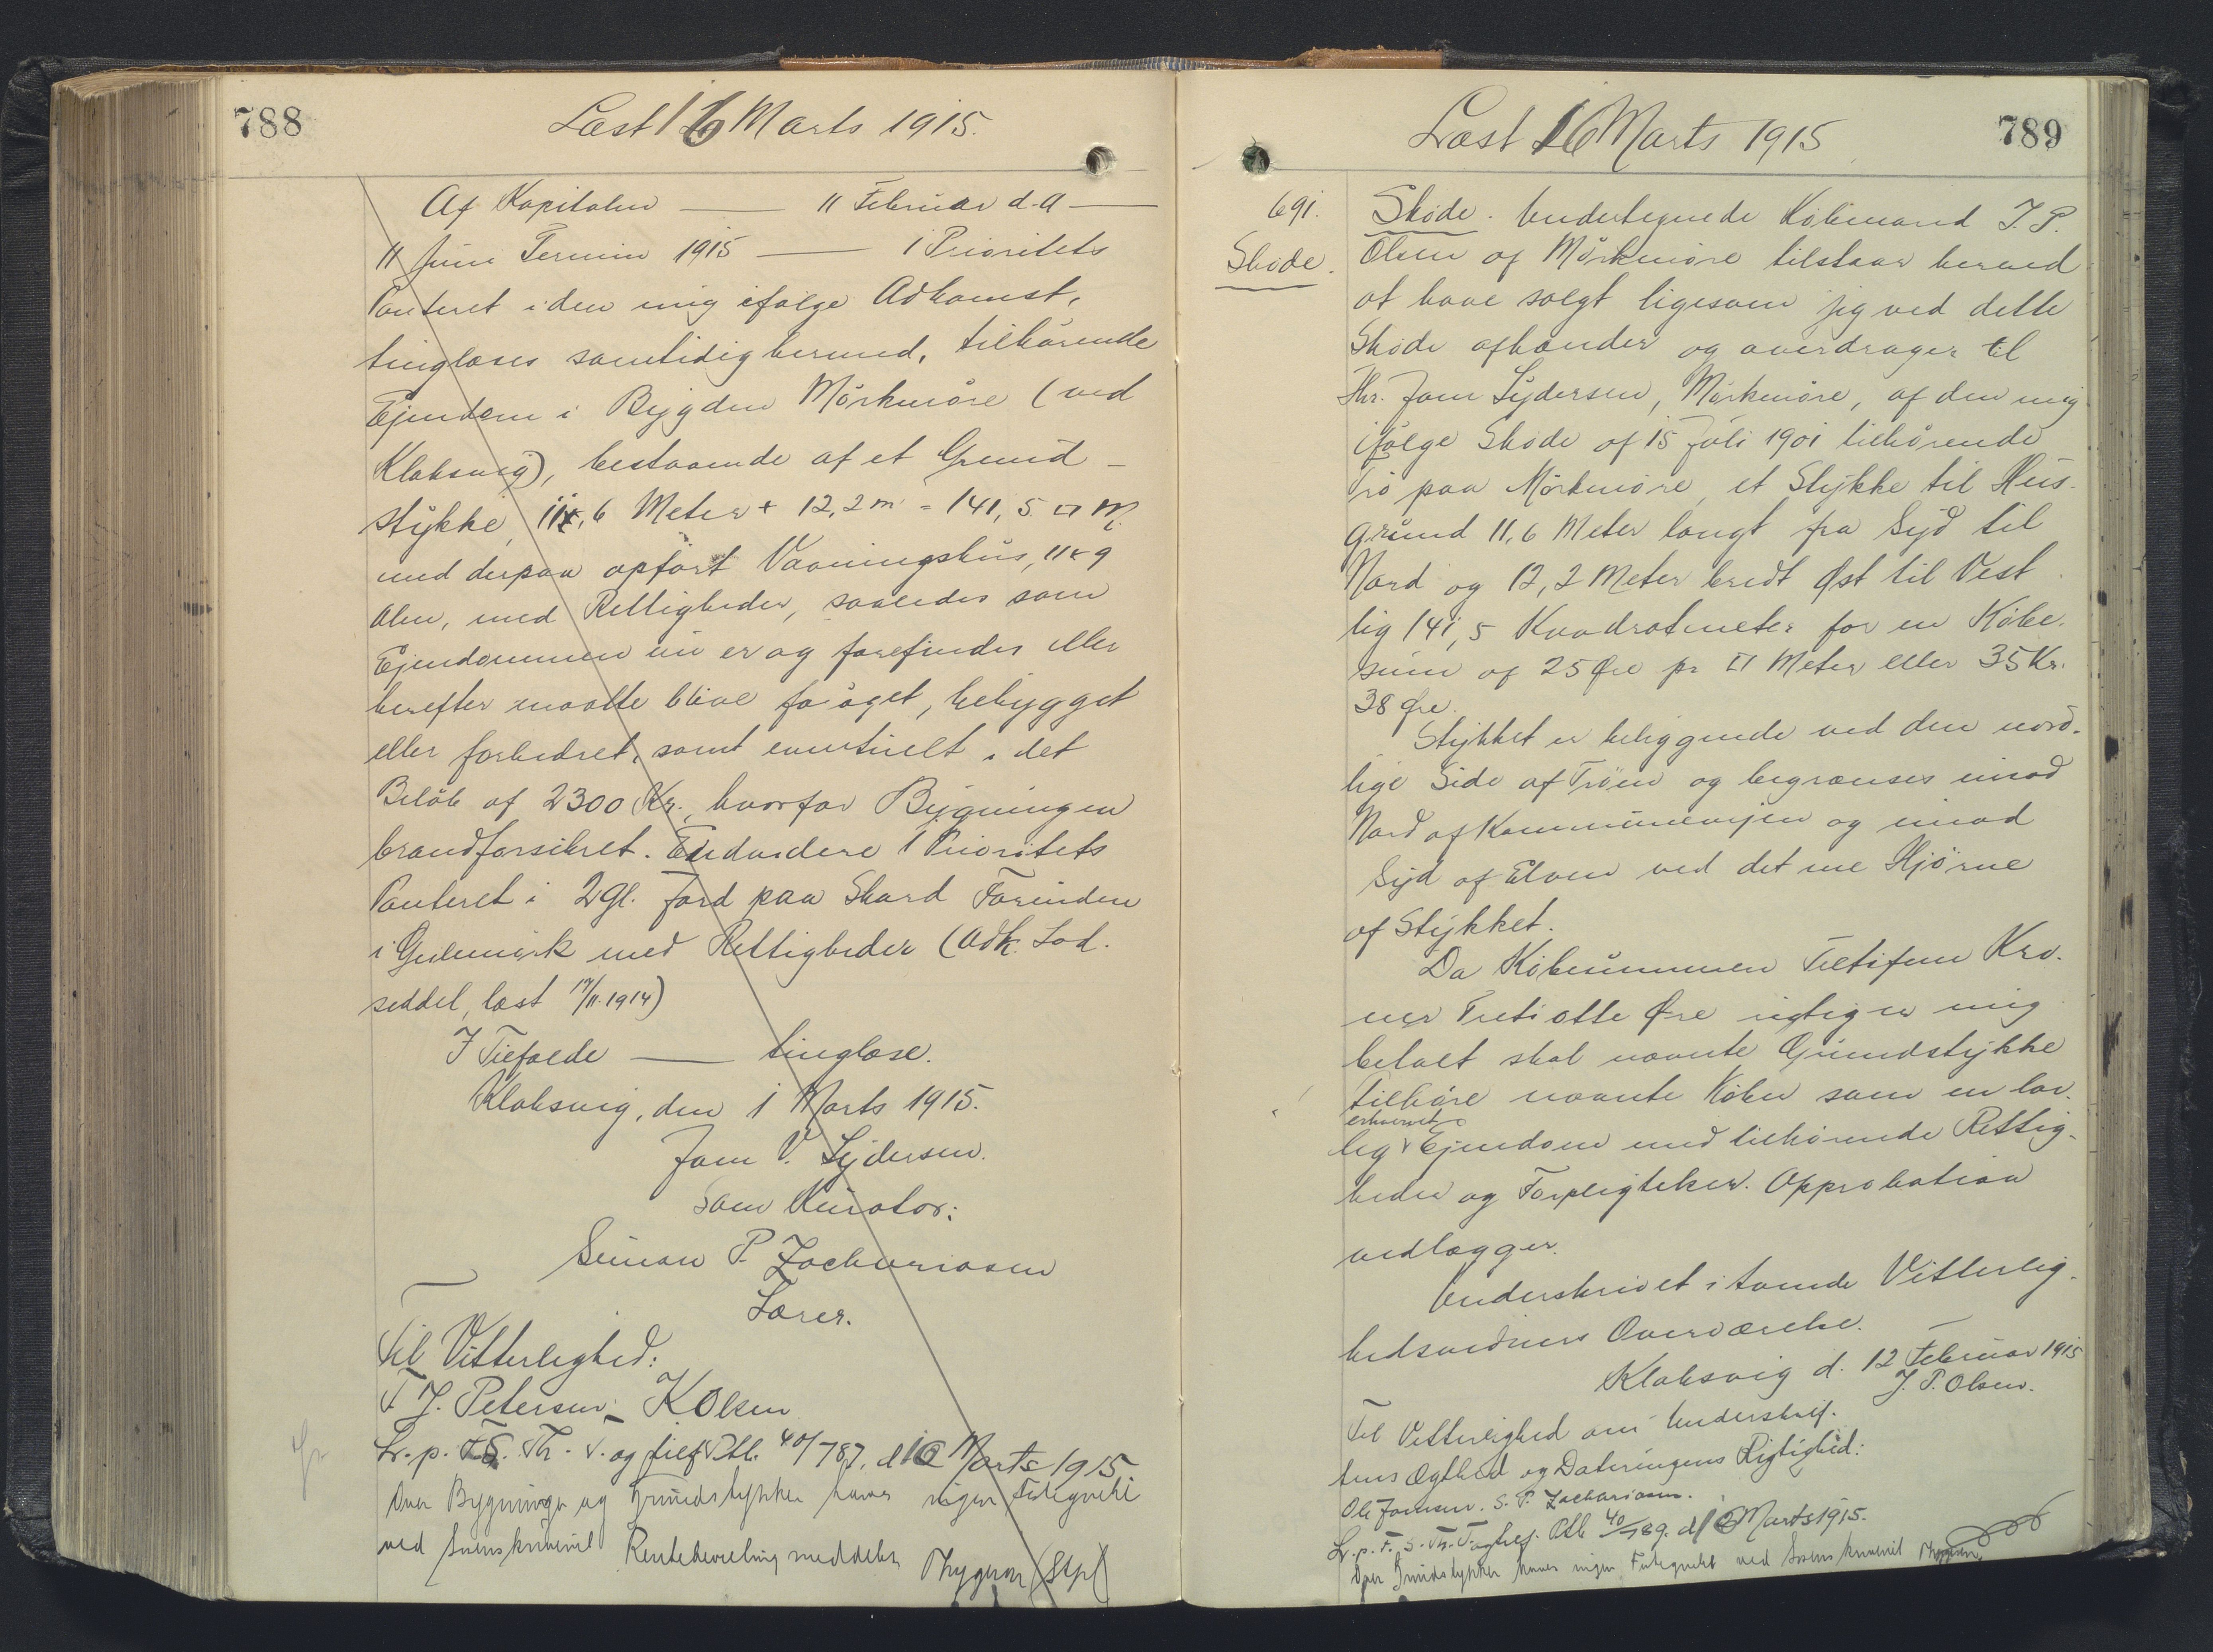 788
Læst 16 Marts 1915.
Af Kapitalen — 11 Februar d. A —
11 Juni Termin 1915 — 1 Prioritets
Panteret i den mig ifølge Adkomst,
tinglæses samtidig hermed, tilhørende
Ejendom i Bygden Mörkmöre (ved
Klaksvig), bestaaende af et Grund-
stykke, 11,6 Meter + 12,2 m = 141,5 □ M.
med derpaa opført Vaaningshus, 11 x 9
Alen, med Rettigheder, saaledes som
Ejendommen nu er og forefindes eller
herefter maatte blive forøget, bebygget
eller forbedret, samt eventuelt i det
Beløb af 2300 Kr., hvorfor Bygningen
brandforsikret. Endvidere 1 Prioritets
Panteret i 2 Gl. Jord paa Skard Forinden
i Geilemark med Rettigheder (Adk. Lod-
seddel, læst 17/11 1914)
I Tilfælde — tinglæse.
Klaksvig, den 1 Marts 1915.
Joen V. Lydersen.
Som Kurator:
Simon P. Zachariasen
Lærer.
Til Vitterlighed:
F J. Petersen - K Olsen
Lr. p. F. S. Th. V. og tilf Ptb. 40/787, d 16 Marts 1915
Over Bygninger og Grundstykker haves ingen Integnelse
ved Sorenskriveriet Rentebevilling meddelt Thygesen (Stpl)
789
Læst 16 Marts 1915
691.
Skøde.
Skøde. Undertegnede Købmand J. P.
Olsen af Mörkmöre tilstaar herved
at have solgt ligesom jeg ved dette
Skøde afhænder og overdrager til
Hr. Joen Lydersen, Mörkmöre, af den mig
ifølge Skøde af 15 Juli 1901 tilhørende
Trø paa Mörkmöre, et Stykke til Hus-
grund 11,6 Meter langt fra Syd til
Nord og 12,2 Meter bredt Øst til Vest
lig 141,5 Kvadratmeter for en Købe-
sum af 25 Øre pr □ Meter eller 35 Kr.
38 Øre.
Stykket er beliggende ved den nord-
lige Side af Trøen og begrænses imod
Nord af Kommunevejen og imod
Syd af Elven ved det ene Hjørne
af Stykket.
Da Købesummen Tretifem Kro-
ner Tretiotte Øre rigtig er mig
betalt skal nævnte Grundstykke
tilhøre nævnte Køber som en lov-
erhvervet
lig Ejendom med tilhørende Rettig-
heder og Forpligtelser. Approbation
vedlægges.
Underskrevet i tvende Vitterlig-
hedsvidners Overværelse.
Klaksvig d. 12 Februar 1915
J. P. Olsen.
Til Vitterlighed om Underskrif-
tens Ægthed og Dateringens Rigtighed:
Ole Joensen. S. P. Zachariasen.
Lr. p. F. S. Th. V og tilf. Ptb 40/789. d 16 Marts 1915.
Over Grundstykker haves ingen Integnelse ved Sorenskriveriet Thygesen